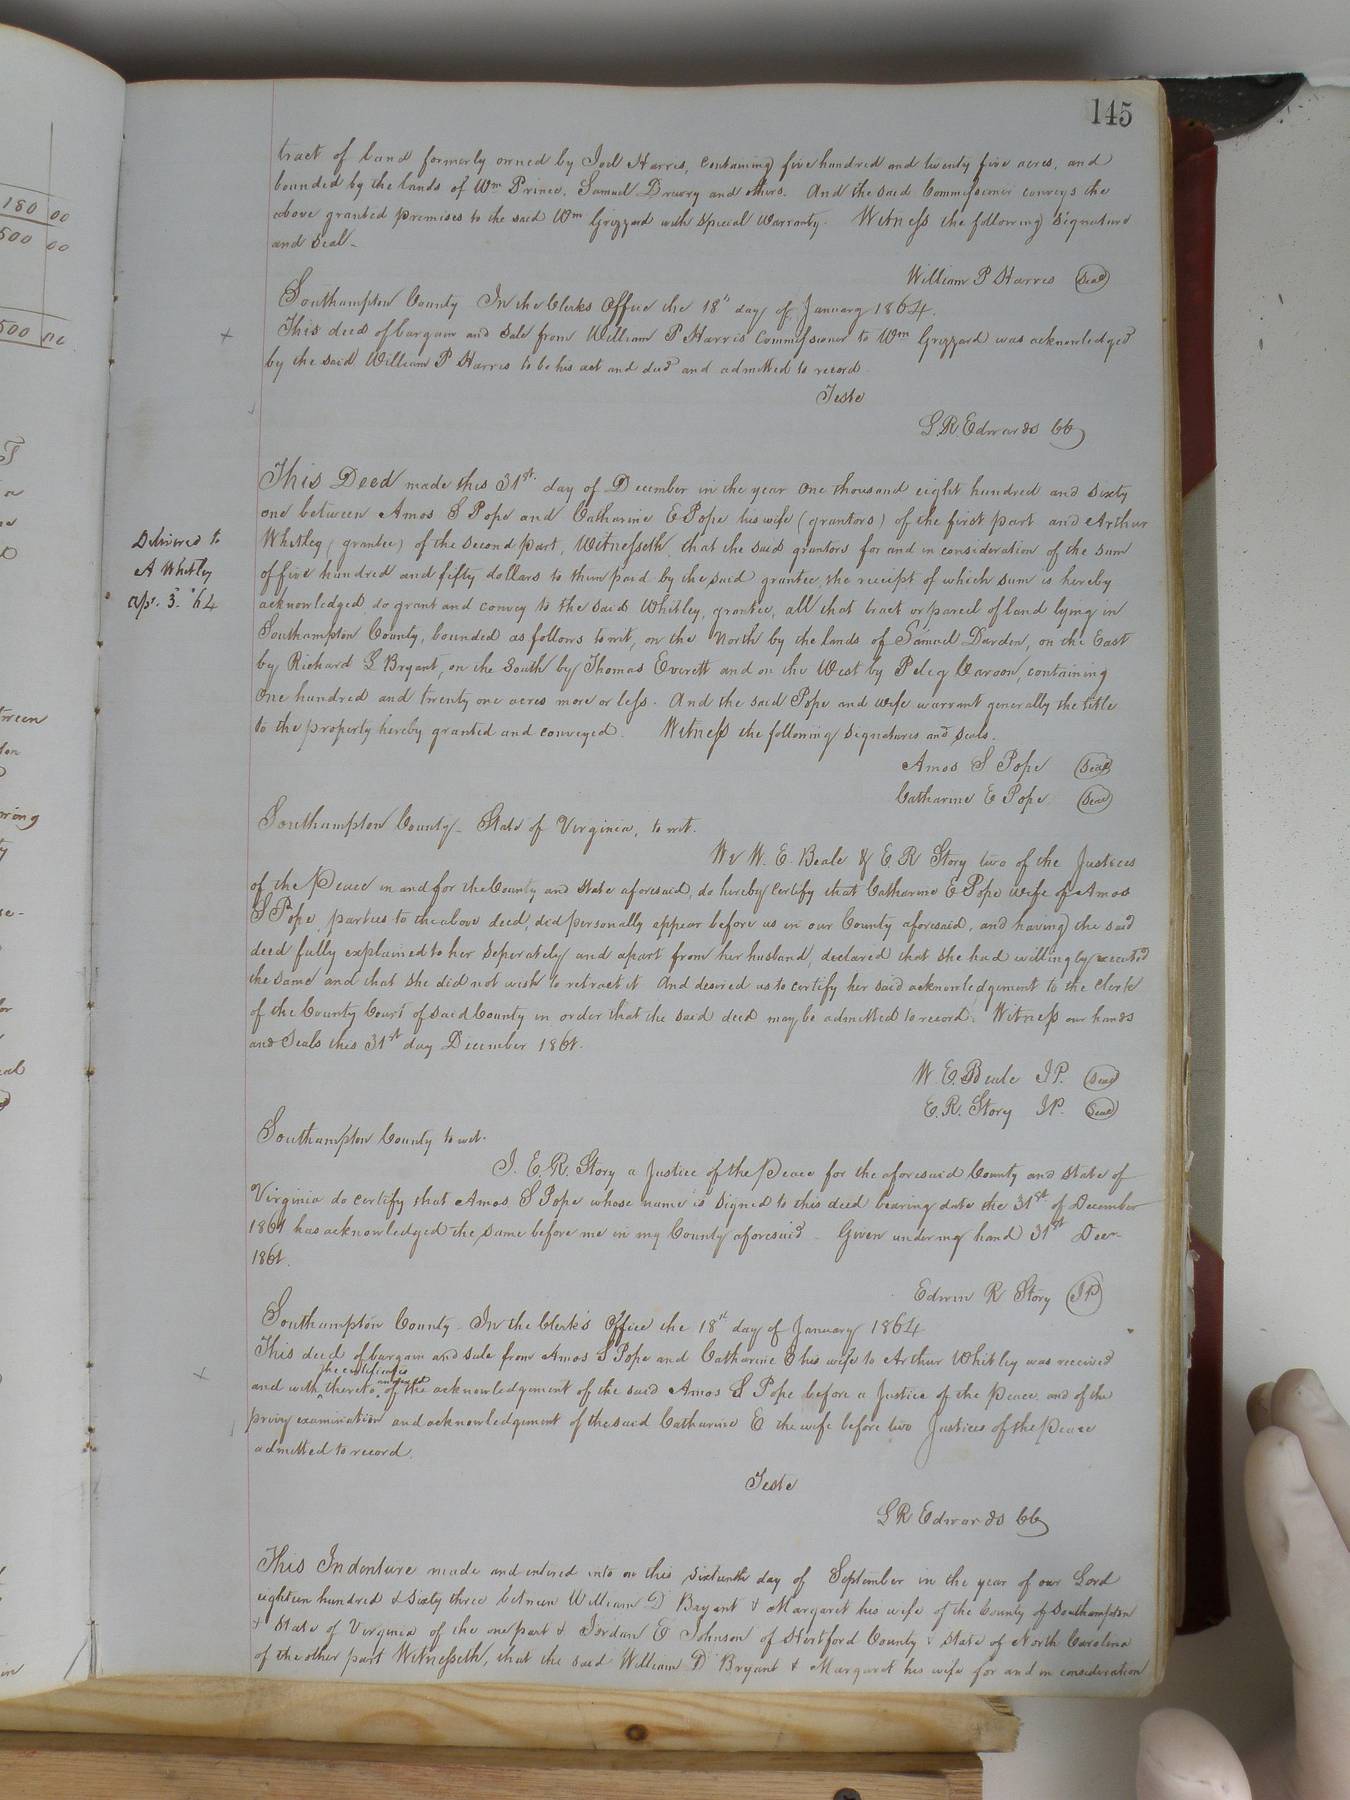 145
tract of land formerly owned by Joel Harris, containing five hundred and twenty five acres, and
bounded by the lands of Wm Prince, Samuel Drewry and others. And the said Commissioner conveys the
above granted premises to the said Wm Grizzard with special warranty. Witness the following signature
and seal -
William P Harris (Seal)
Southampton County In the Clerks Office the 18th day of January 1864.
This deed of bargain and sale from William P Harris Commissioner to Wm Grizzard was acknowledged
by the said William P Harris to be his act and deed and admitted to record
Teste
L R Edwards CC
This Deed made this 31st day of December in the year one thousand eight hundred and sixty
one between Amos S Pope and Catharine E Pope his wife (grantors) of the first part and Arthur
Whitley (grantee) of the second part, Witnesseth, that the said grantors for and in consideration of the sum
of five hundred and fifty dollars to them paid by the said grantee, the receipt of which sum is hereby
acknowledged, do grant and convey to the said Whitley, grantee, all that tract or parcel of land lying in
Southampton County, bounded as follows to wit, on the North by the lands of Samuel Darden, on the East
by Richard L Bryant, on the South by Thomas Everett and on the West by Peleg Carson, containing
One hundred and twenty one acres more or less. And the said Pope and wife warrant generally the title
to the property hereby granted and conveyed. Witness the following signatures and seals.
Delivered to
A Whitley
Apr. 3. '64
Amos S Pope (Seal)
Catharine E Pope (Seal)
Southampton County - State of Virginia, to wit.
We W. E. Beale & E. R Story two of the Justices
of the Peace in and for the County and State aforesaid, do hereby certify that Catharine E Pope wife of Amos
S Pope, parties to the above deed, did personally appear before us in our County aforesaid, and having the said
deed fully explained to her seperately and apart from her husband, declared that she had willingly executed
the same and that she did not wish to retract it And desired us to certify her said acknowledgement to the Clerk
of the County Court of said County in order that the said deed may be admitted to record. Witness our hands
and Seals this 31st day December 1861.
W. E. Beale JP. (Seal)
E. R. Story JP. (Seal)
Southampton County to wit.
I. E. R. Story a Justice of the Peace for the aforesaid County and State of
Virginia do certify that Amos S Pope whose name is signed to this deed bearing date the 31st of December
1861 has acknowledged the same before me in my County aforesaid - Given under my hand 31st Decr
1861.
Edwin R Story (JP)
Southampton County - In the Clerk's Office the 18th day of January 1864
This deed of bargain and sale from Amos S Pope and Catharine E his wife to Arthur Whitley was received
the certificates annexed
and with thereto of the acknowledgement of the said Amos S Pope before a Justice of the Peace, and of the
privy examination and acknowledgment of the said Catharine E the wife before two Justices of the peace
admitted to record.
Teste
L R Edwards CC
This Indenture made and entered into on this sixteenth day of September in the year of our Lord
eighteen hundred & sixty three between William D Bryant & Margaret his wife of the County of Southampton
& State of Virginia of the one part & Jordan E Johnson of Hertford County & State of North Carolina
of the other part Witnesseth, that the said William D Bryant & Margaret his wife for and in consideration
180 00
500 00
500 00